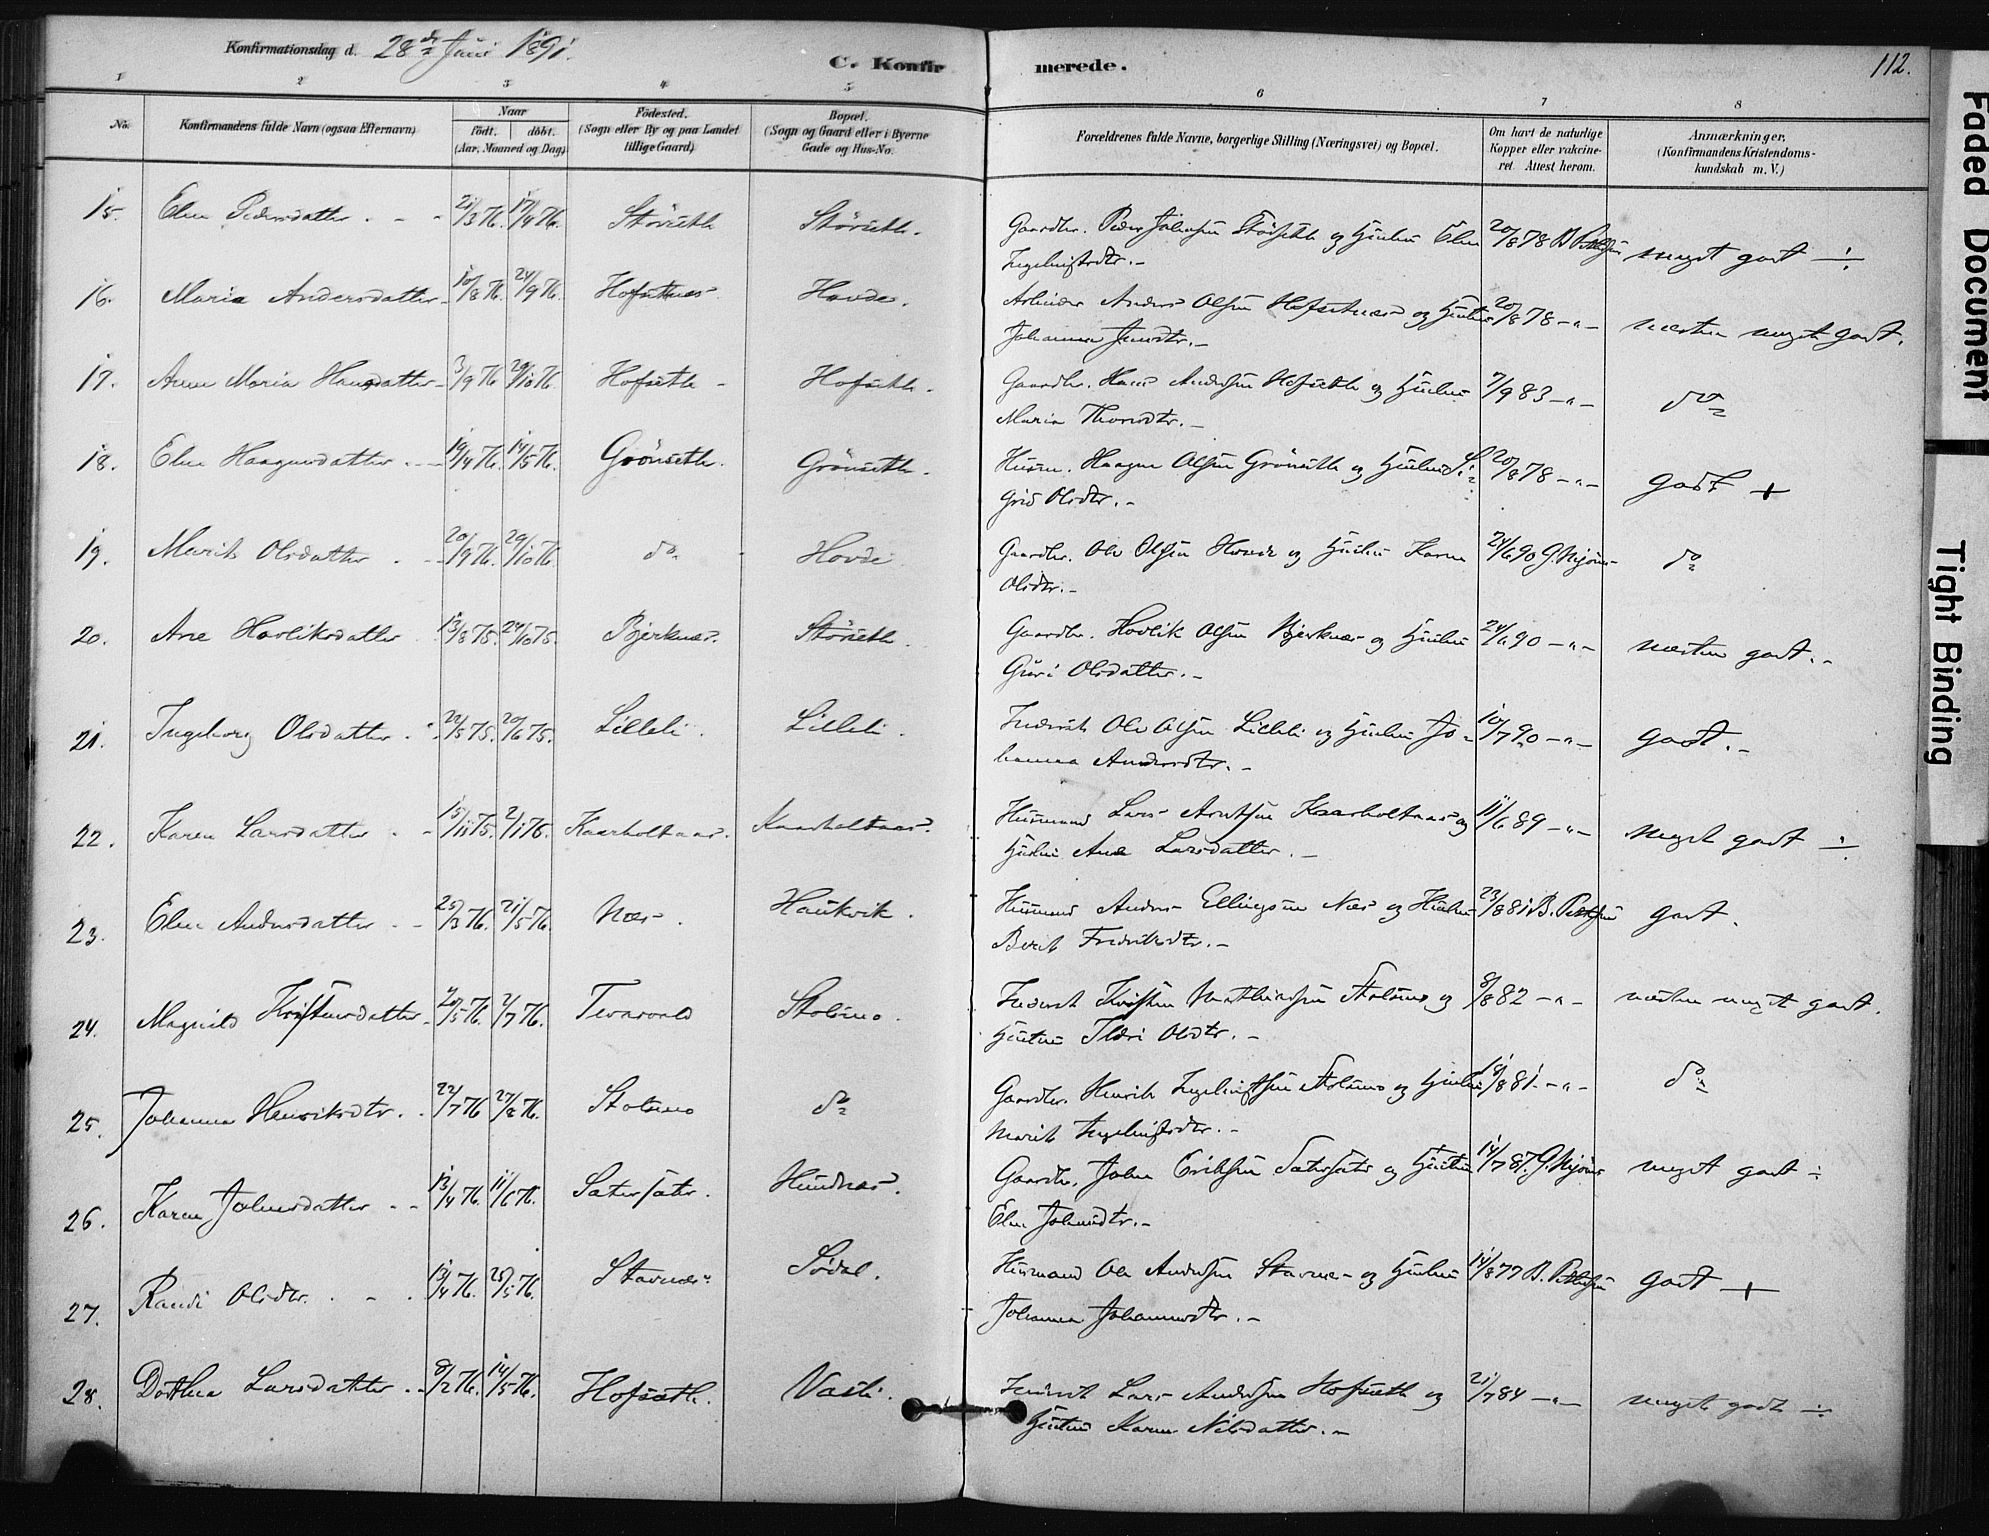 Konfirmationsdag d. 28de Juni 1891.
C. Konfirmerede.
112.
1 2 3 4 5 6 7 8
No.
Konfirmandens fulde Navn (ogsaa Efternavn)
Naar
födt. döbt.
(Aar, Maaned og Dag)
Födested.
(Sogn eller By og paa Landet
tillige Gaard)
Bopæl.
(Sogn og Gaard eller i Byerne
Gade og Hus-No.
Forældrenes fulde Navne, borgerlige Stilling (Næringsvei) og Bopæl.
Om havt de naturlige
Kopper eller vakcine-
ret. Attest herom.
Anmærkninger,
(Konfirmandens Kristendoms-
kundskab m. V.)
15. Elen Pedersdatter 21/3 76. 17/4 76. Störseth Störseth. Gaardbr. Peder Johnsen Störseth og Hustru Elen 20/8 78 meget godt ÷
Ingebrigtsdtr.-
16. Maria Andersdatter 10/8 76. 24/9 76. Hofsetnes Hovde. Arbeider Anders Olsen Hofsetnes og Hustru 20/8 78 -"- næsten meget godt.
Johanna Jensdtr.-
17. Anne Maria Hansdatter 3/9 76 29/10 76. Hofseth Hofseth. Gaardbr. Hans Andersen Hofseth og Hustru 7/9 83 -"- do
Maria Thorsdtr.-
18. Elen Haagensdatter 19/4 76. 14/5 76. Grönseth. Grönseth. Husm. Haagen Olsen Grönseth og Hustru Si= 20/8 78 -"- godt +
grid Olsdtr.-
19. Marit Olsdatter 20/9 76. 29/10 76. do Hovde Gaardbr. Ole Olsen Hovde og Hustru Karen 24/6 90 do
Olsdtr.-
20. Ane Hovliksdatter 13/8 75. 24/10 75. Bjerknes. Störseth. Gaardbr. Hovlik Olsen Bjerknes og Hustru 24/6 90 -"- næsten godt.-
Guri Olsdatter.-
21. Ingeborg Olsdatter 22/5 75. 20/6 75. Lilleli. Lilleli. Inderst Ole Olsen Lilleli og Hustru Jo= 10/7 90 -"- godt.-
hanna Andersdtr.-
22. Karen Larsdatter 15/11 75. 2/1 76. Kaarholtaas. Kaarholtaas. Husmand Lars Arntsen Kaarholtaas og 11/6 89 -"- meget godt ÷
Hustru Ane Larsdatter.-
23. Elen Andersdatter 25/3 76. 21/5 76. Næs. Haukvik. Husmand Anders Ellingsen Næs og Hustru 23/8 81 godt.
Berit Fredriksdtr.-
24. Magnild Kristensdatter 20/5 76. 2/7 76. Tevasvold Stolsmo. Inderst Kristen Mathiasen Stolsmo og 8/8 82 -"- næsten meget godt.
Hustru Ildri Olsdtr.-
25. Johanna Henriksdtr. 22/7 76 27/8 76. Stolsmo do Gaardbr. Henrik Ingebrigtsen Stolsmo og Hustru 18/8 81 -"- do
Marit Ingebrigtsdtr.-
26. Karen Johnsdatter 13/4 76. 11/6 76. Sætersæter. Hundnæs. Gaardb. John Eriksen Sætersæter og Hustru 14/7 87. meget godt ÷
Elen Johnsdtr.-
27. Randi Olsdtr. 13/4 76. 25/5 76. Stavnæs Södal. Husmand Ole Andersen Stavnæs og Hustru 14/8 77 godt +
Johanna Johannesdtr.-
28. Dorthea Larsdatter 8/2 76. 14/5 76. Hofseth. Vasli. Inderst Lars Andersen Hofseth og 21/7 84 -"- meget godt ÷
Hustru Karen Nilsdatter.-
Faded Document
Tight Binding